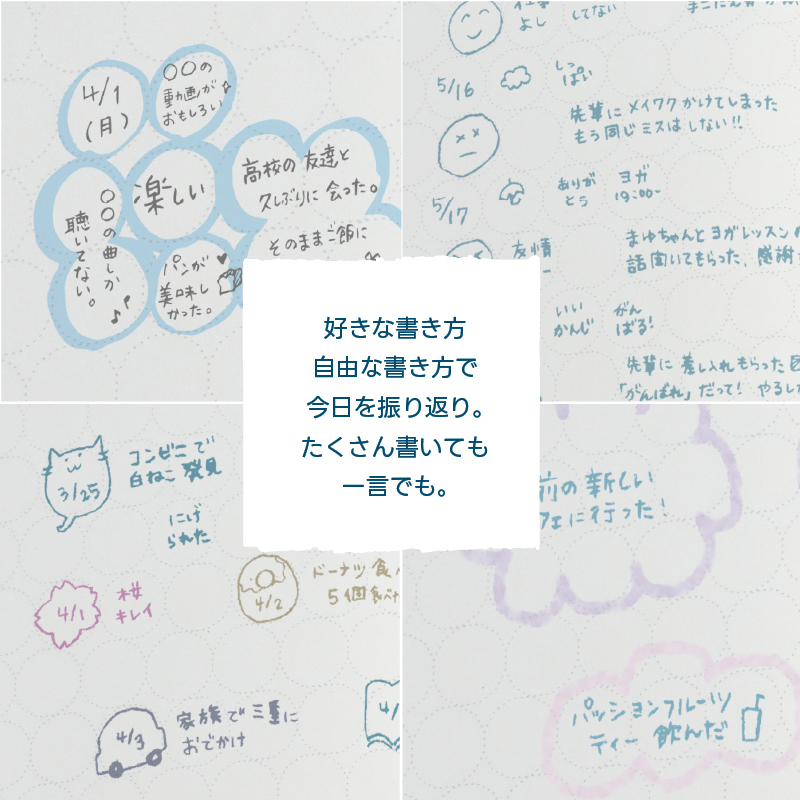 4/1
(月)
〇〇の
動画が
おもしろい
楽しい
〇〇の曲しか
聴いてない。
パンが
美味し
かった。
高校の友達と
久しぶりに会った。
そのままご飯に
よし
してない
5/16
しっ
ぱい
先輩にメイワクかけてしまった
もう同じミスはしない!!
5/17
ありが
とう
ヨガ
19:00~
友情
まゆちゃんとヨガレッスン
話聞いてもらった、感謝
いい
かんじ
がん
ばる!
先輩に差し入れもらった
「がんばれ」だって! やるし
好きな書き方
自由な書き方で
今日を振り返り。
たくさん書いても
一言でも。
3/25
コンビニで
白ねこ発見
にげ
られた
4/1
桜
キレイ
4/2
ドーナツ食べ
5個食べ
4/3
家族で三重に
おでかけ
4/
前の新しい
フェに行った!
パッションフルーツ
ティー飲んだ